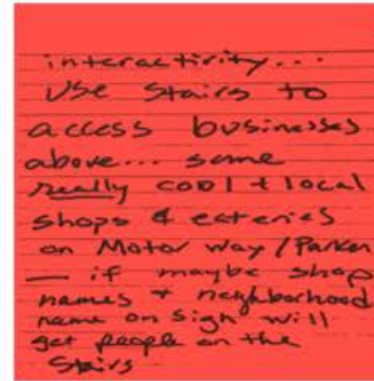 interactivity...
Use stairs to
access businesses
above... some
really cool + local
shops & eateries
on Motor way / Parker
— if maybe shop
names + neighborhood
name on sign will
get people on the
stairs